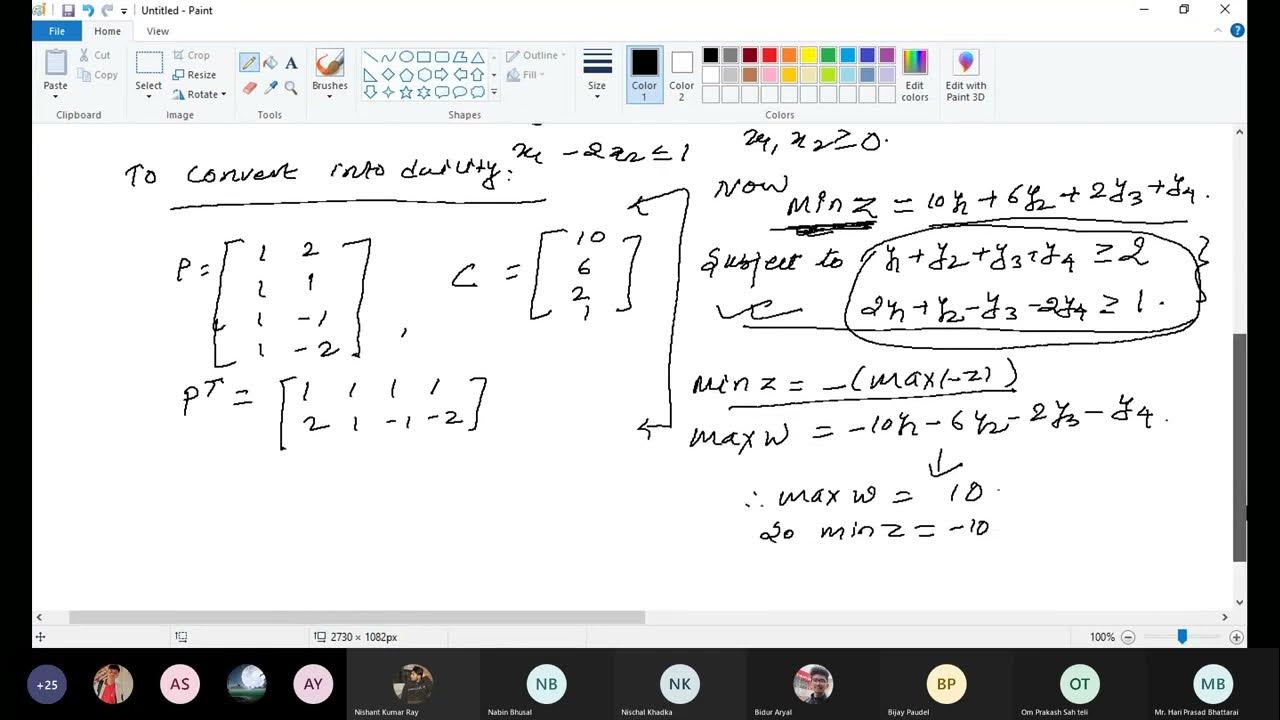 Untitled - Paint
File Home View
Paste Cut Copy Clipboard
Select Crop Resize Rotate Image
Tools
Brushes
Shapes Outline Fill
Size
Color 1 Color 2 Colors
Edit colors
Edit with Paint 3D
x1 - 2x2 ≤ 1 x1, x2 ≥ 0.
To convert into duility:
P = [1 2
1 1
1 -1
1 -2] ,
C = [10
6
2
1]
PT = [1 1 1 1
2 1 -1 -2]
Now
Min Z = 10y1 + 6y2 + 2y3 + y4.
Subject to y1 + y2 + y3 + y4 ≥ 2
2y1 + y2 - y3 - 2y4 ≥ 1.
Min Z = -(max(-Z))
max W = -10y1 - 6y2 - 2y3 - y4.
∴ max W = 10.
So min Z = -10
2730 × 1082px
100%
+25 AS AY NB NK BP OT MB
Nishant Kumar Ray Nabin Bhusal Nischal Khadka Bidur Aryal Bijay Paudel Om Prakash Sah teli Mr. Hari Prasad Bhattarai